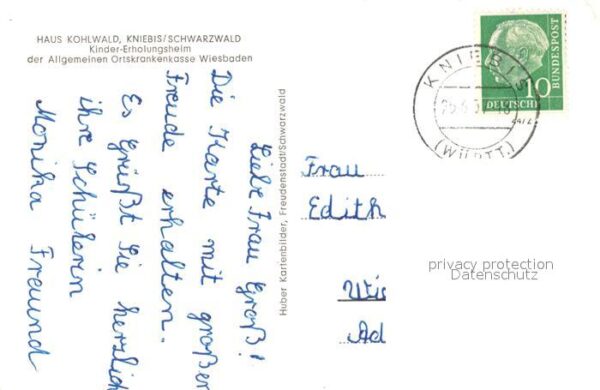 HAUS KOHLWALD, KNIEBIS/SCHWARZWALD
Kinder-Erholungsheim
der Allgemeinen Ortskrankenkasse Wiesbaden
Liebe Frau Groß!
Die Karte mit großer
Freude erhalten.
Es Grüßt Sie herzlich
ihre Schülerin
Monika Freund
Huber Kartenbilder, Freudenstadt/Schwarzwald
KNIEBIS
(WÜRTT.)
10
DEUTSCHE
BUNDESPOST
Frau
Edith
Wie
Ad
privacy protection
Datenschutz